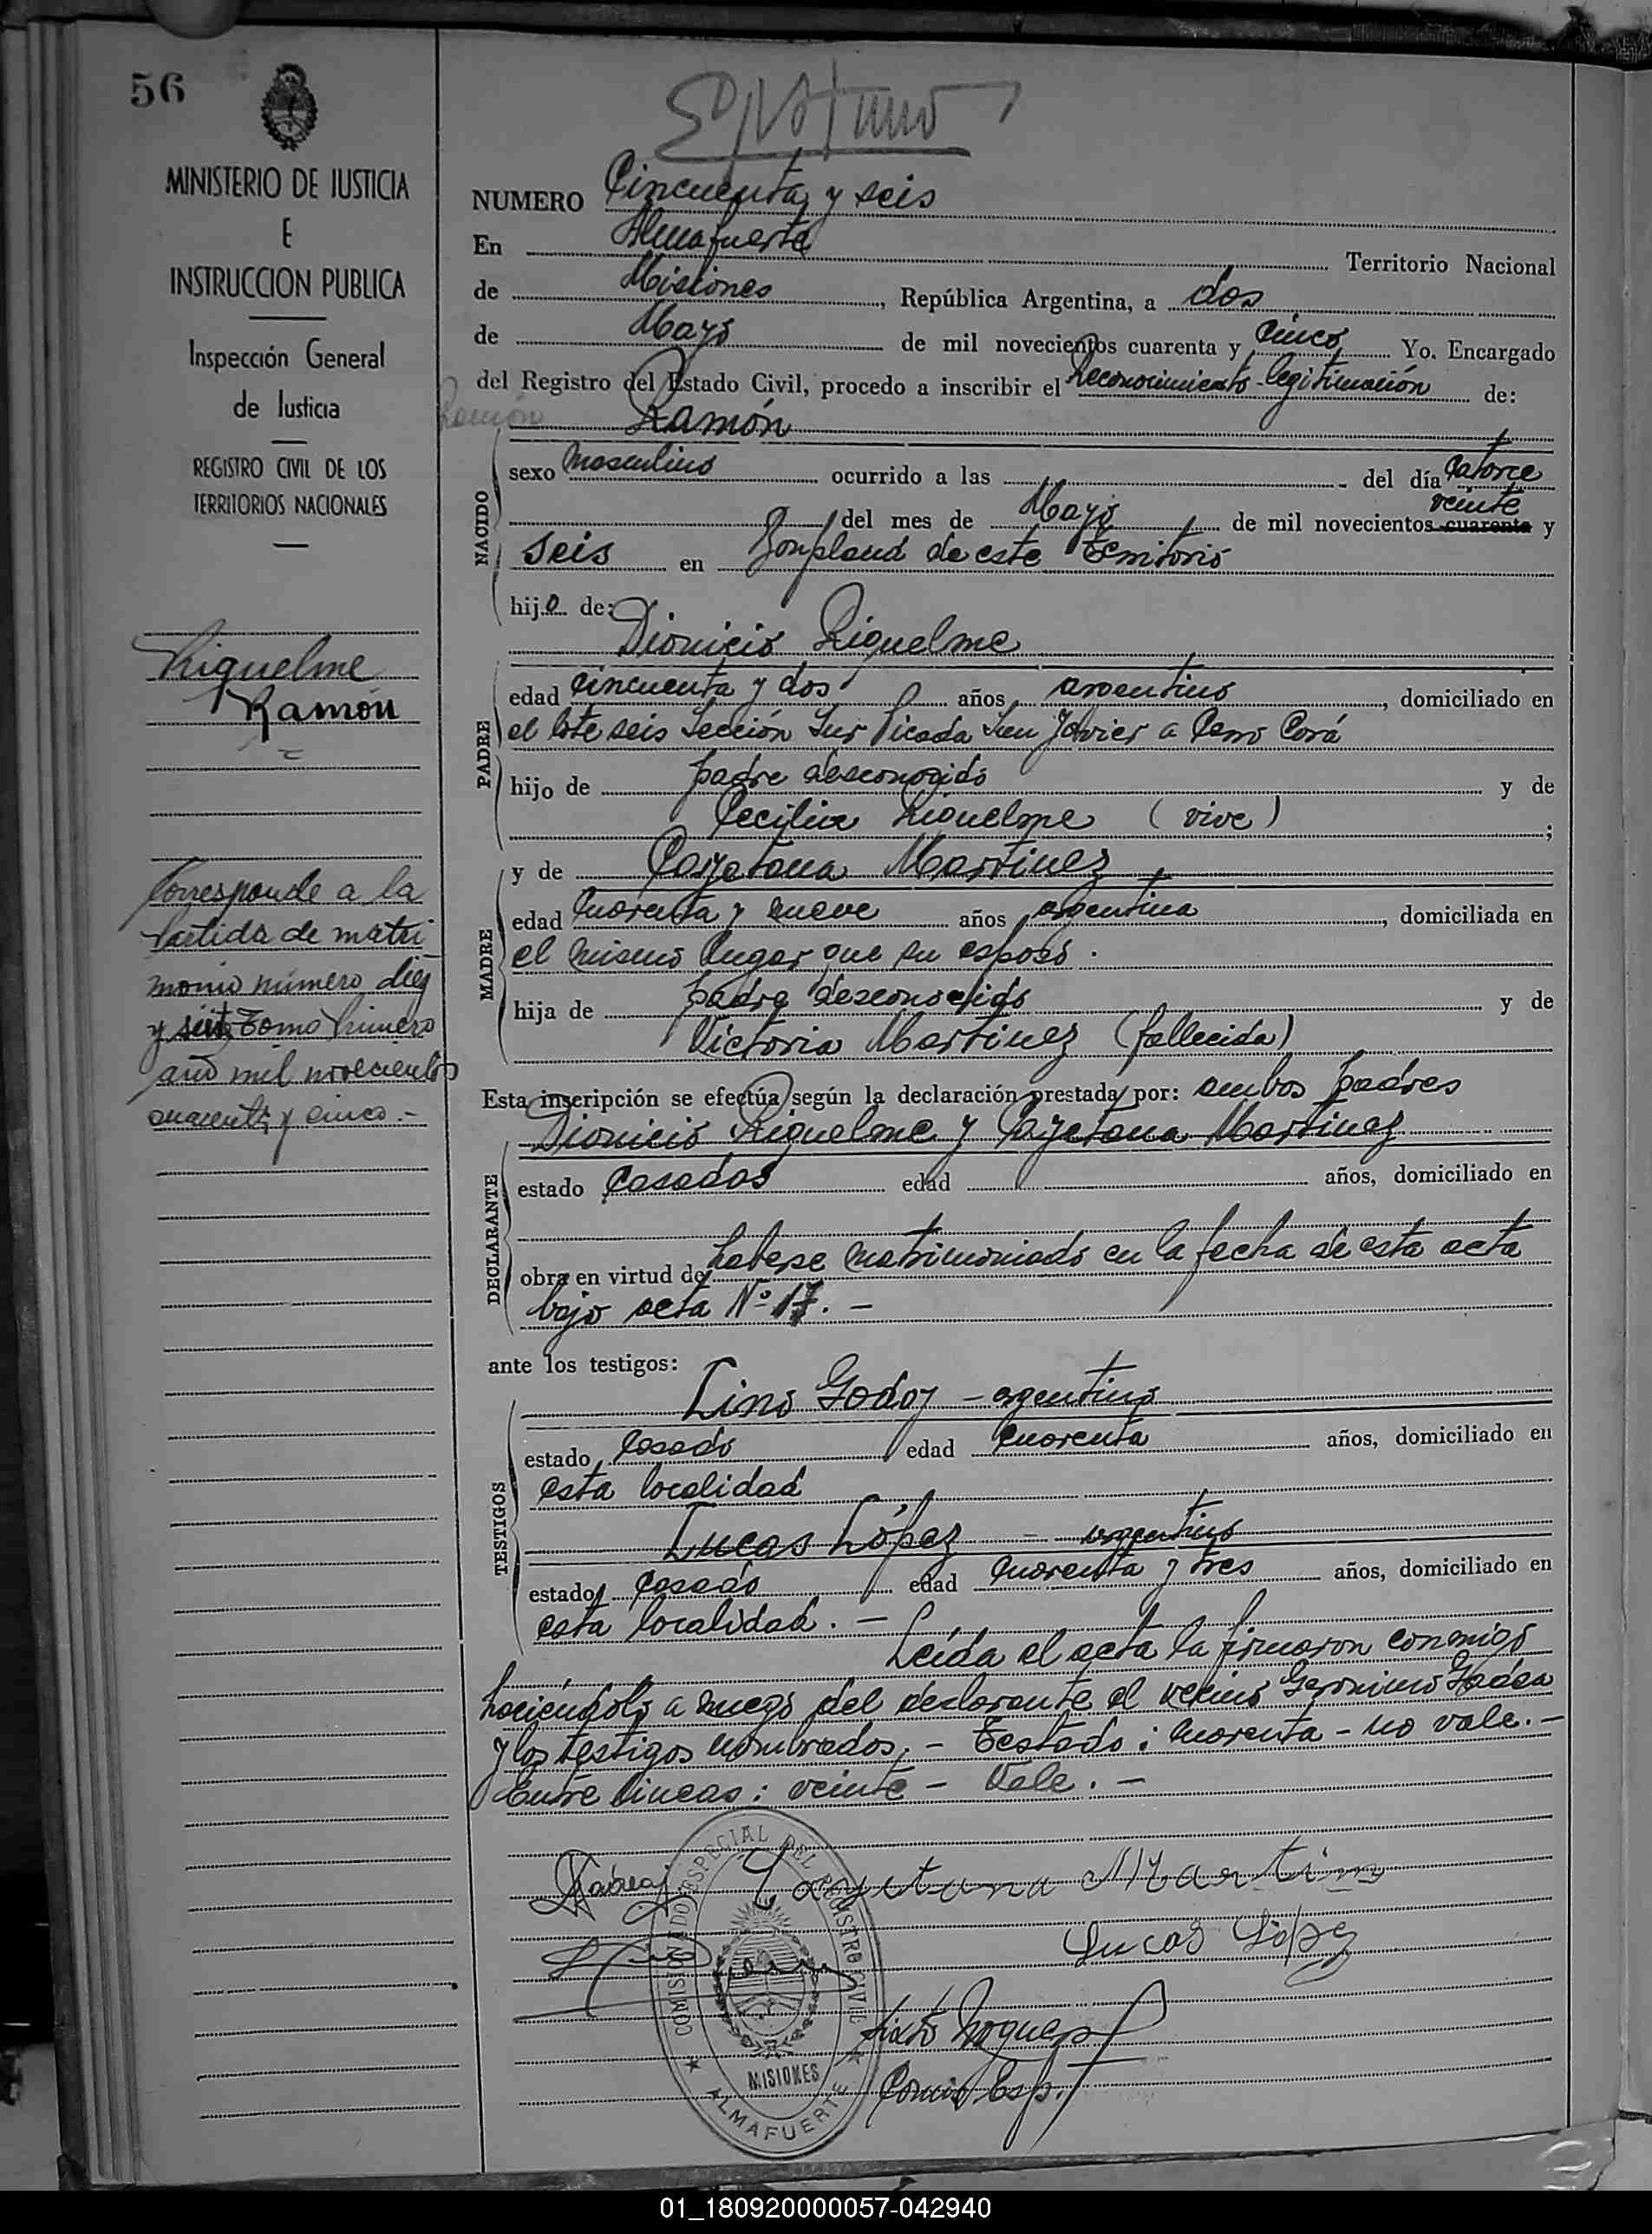 56
MINISTERIO DE JUSTICIA
E
INSTRUCCION PUBLICA
Inspección General
de Justicia
REGISTRO CIVIL DE LOS
TERRITORIOS NACIONALES
Riquelme
Ramón
Corresponde a la
partida de matri
monio número diez
y siete Tomo primero
año mil novecientos
cuarenta y cinco.-
NUMERO Cincuenta y seis
En Almafuerte Territorio Nacional
de Misiones, República Argentina, a dos
de Mayo de mil novecientos cuarenta y cinco Yo. Encargado
del Registro del Estado Civil, procedo a inscribir el Reconocimiento-legitimación de:
Ramón Ramón
NACIDO
sexo masculino ocurrido a las del día catorce
veinte
del mes de Mayo de mil novecientos cuarenta y
seis en Bonpland de este Territorio
hijo de:
Dionicio Riquelme
PADRE
edad cincuenta y dos años argentino, domiciliado en
el lote seis Sección Sur Picada San Javier a Cerro Corá
hijo de padre desconocido y de
Cecilia Riquelme (vive);
MADRE
y de Cayetana Martinez
edad cuarenta y nueve años argentina, domiciliada en
el mismo lugar que su esposo.
hija de padre desconocido y de
Victoria Martinez (fallecida)
Esta inscripción se efectúa según la declaración prestada por: ambos padres
Dionicio Riquelme y Cayetana Martinez
DECLARANTE
estado Casados edad años, domiciliado en
obra en virtud de haberse matrimoniado en la fecha de esta acta
bajo acta Nº 17.-
ante los testigos:
TESTIGOS
Lino Godoy - argentino
estado Casado edad cuarenta años, domiciliado en
esta localidad
Lucas López argentino
estado casado edad cuarenta y tres años, domiciliado en
esta localidad.-
Leída el acta la firmaron conmigo
haciéndolo a ruego del declarante el vecino Geronimo
y los testigos nombrados.- Testado: cuarenta - no vale.-
Entre lineas: veinte - Vale.-
Cayetana Martinez
Lucas López
Comis. Esp.
COMISIONADO ESPECIAL DEL REGISTRO CIVIL
MISIONES
ALMAFUERTE
01_180920000057-042940